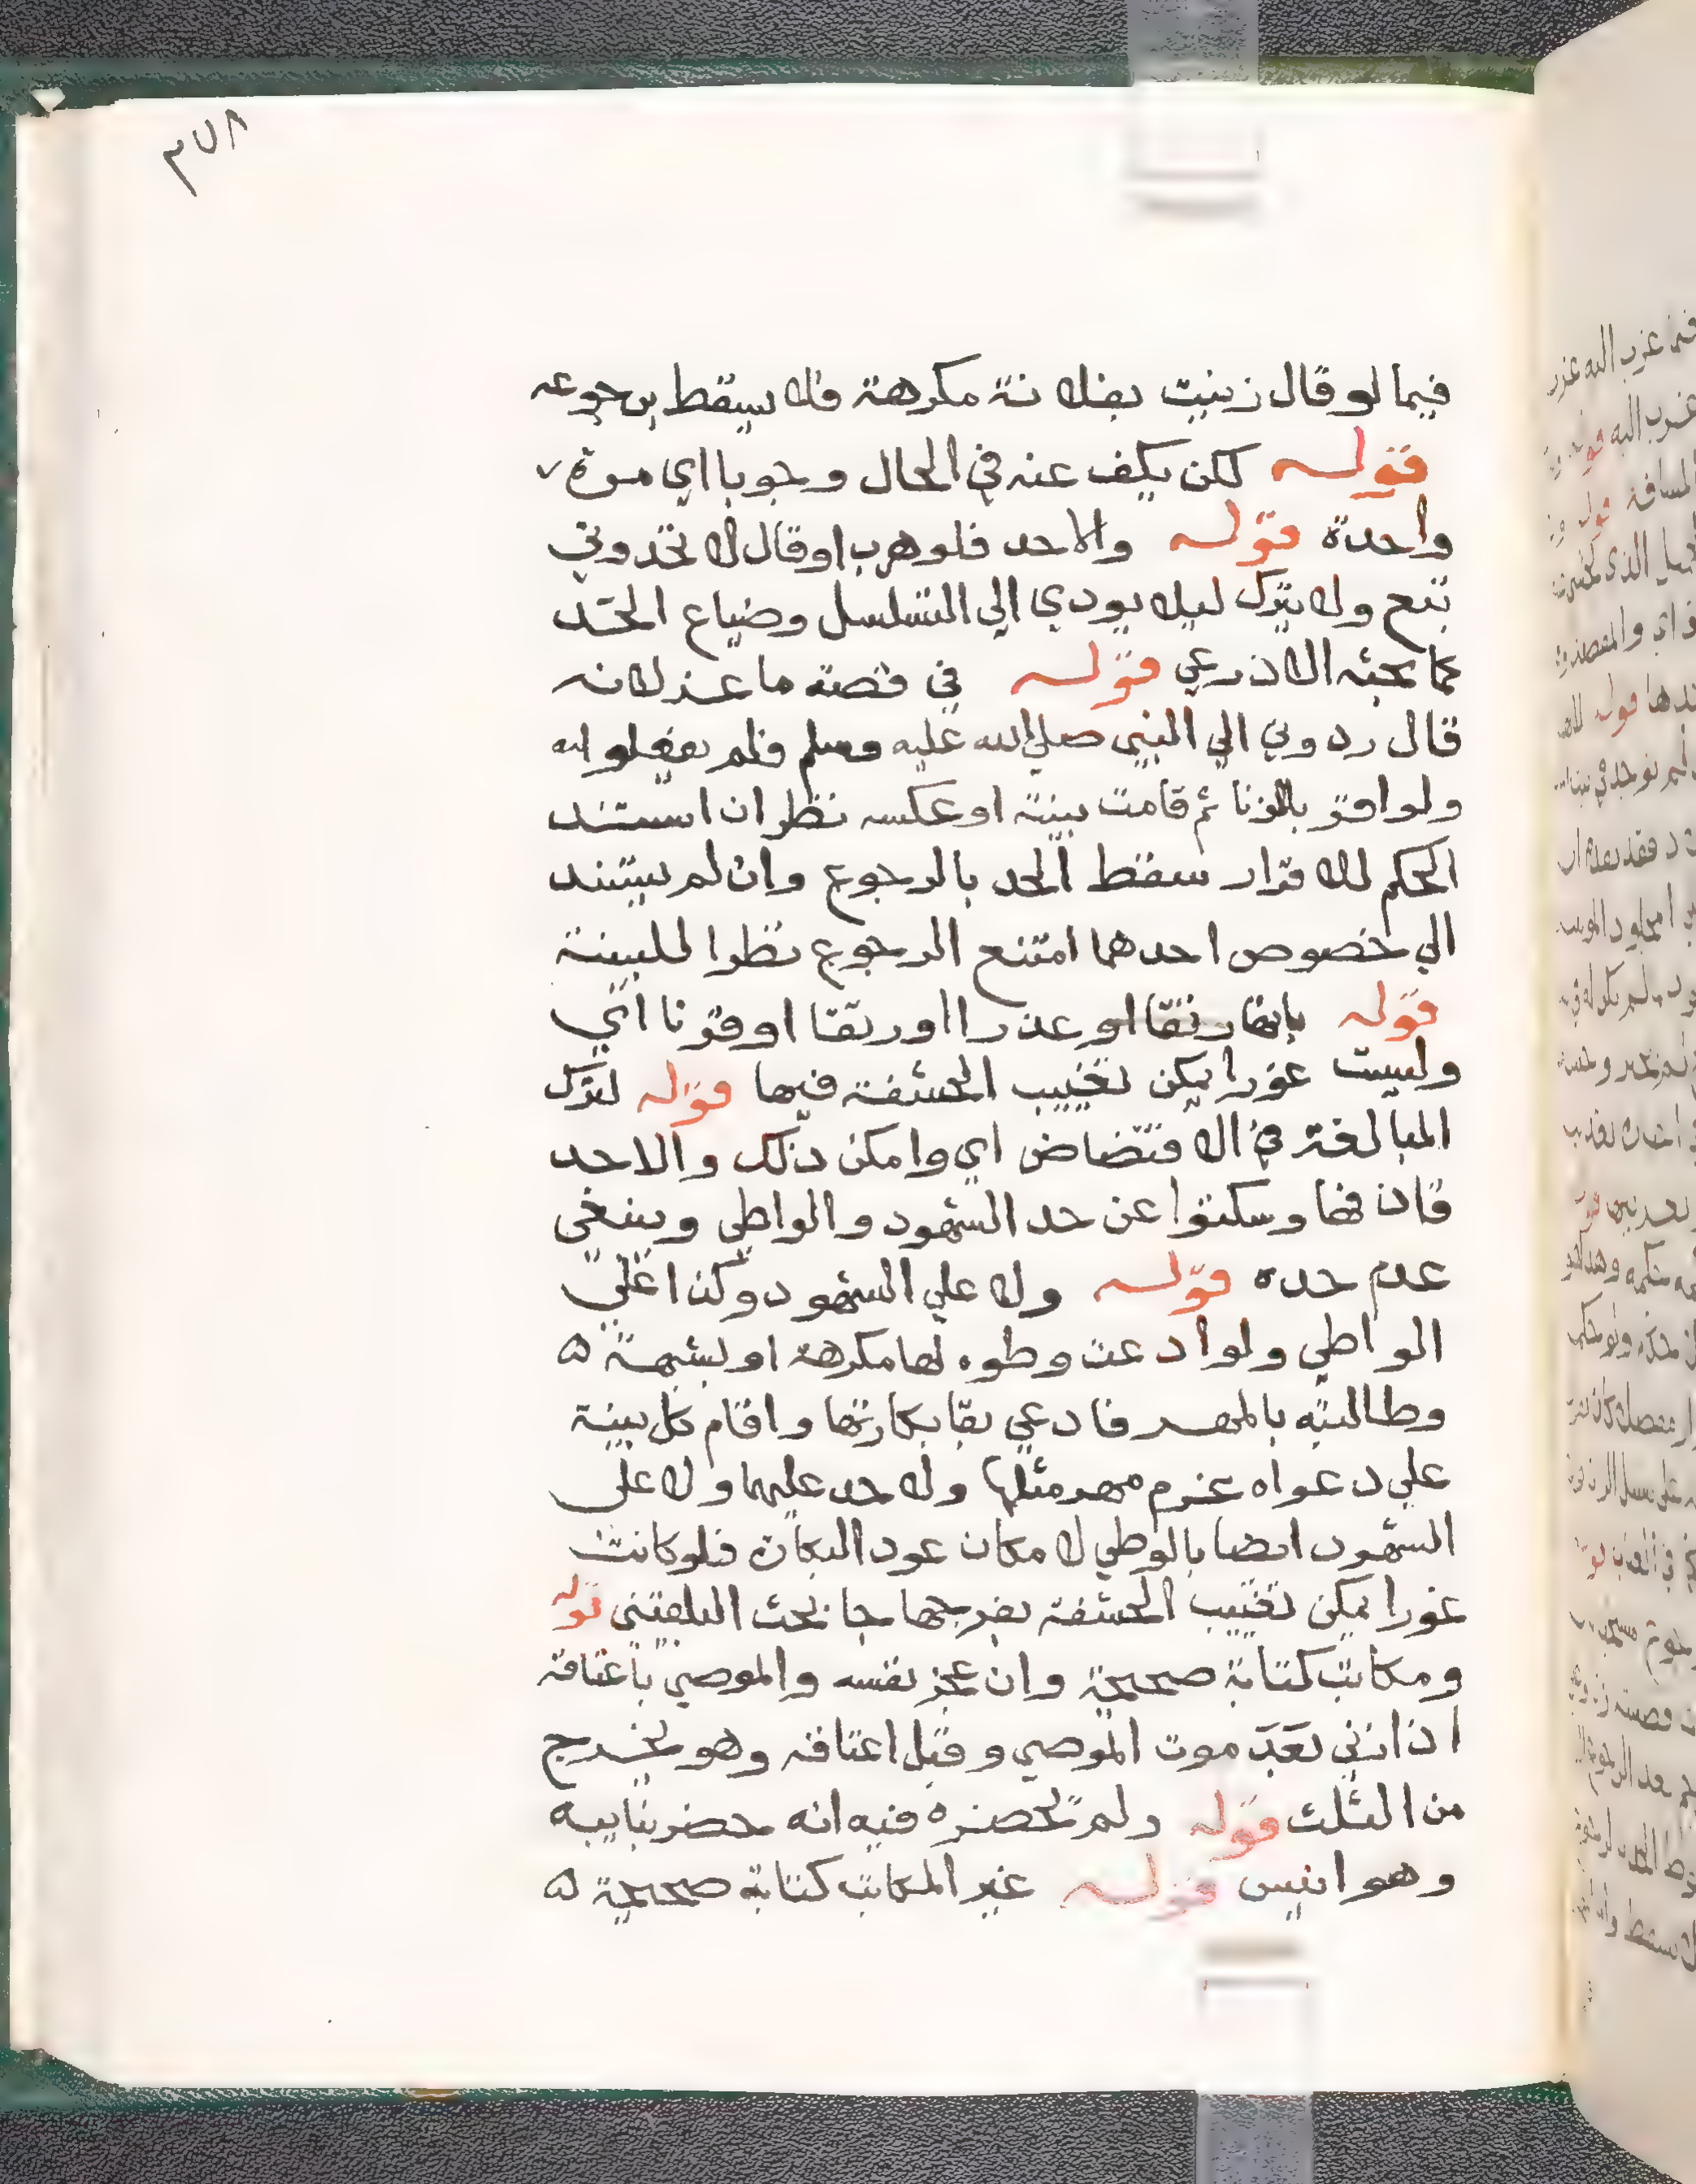 ٣٧٨
فيما لو قال زنيت بفلانة مكرهة فلا يسقط برجوعه
قوله لكن يكف عنه في الحال وجوبا اي مرة
واحدة قوله والا حد فلو هرب او قال لا تحدوني
تبع ولا يترك ليلا يودي الي التسلسل وضياع الحد
كما بحثه الاذرعي قوله في قصة ماعز لانه
قال ردوني الي النبي صلي الله عليه وسلم فلم يفعلوا
ولو اقر بالزنا ثم قامت بينة او عكسه نظر ان استند
الحكم للاقرار سقط الحد بالرجوع وان لم يستند
الي خصوص احدهما امتنع الرجوع نظرا للبينة
قوله بانها رتقا او عذرا او رتقا او قرنا اي
وليست غورا يمكن تغييب الحشفة فيها قوله لترك
المبالغة في الافتضاض اي وامكن ذلك والا حد
قاذفها وسكتوا عن حد الشهود والواطي وينبغي
عدم حده قوله ولا علي الشهود وكذا علي
الواطي ولو ادعت وطوه لها مكرهة او بشبهة ه
وطالبته بالمهر فادعي بقا بكارتها واقام كل بينة
علي دعواه غرم مهر مثلها ولا حد عليهما ولا علي
الشهود ايضا بالوطي لامكان عود البكارة فلو كانت
غورا يمكن تغييب الحشفة بفرجها جا بحث البلقيني قوله
ومكاتب كتابة صحيحة وان عجز نفسه والموصي باعتاقه
اذا زني بعد موت الموصي وقبل اعتاقه وهو يخرج
من الثلث قوله ولم تحضره فيه انه حضر بنايبه
وهو انيس قوله غير المكاتب كتابة صحيحة ه